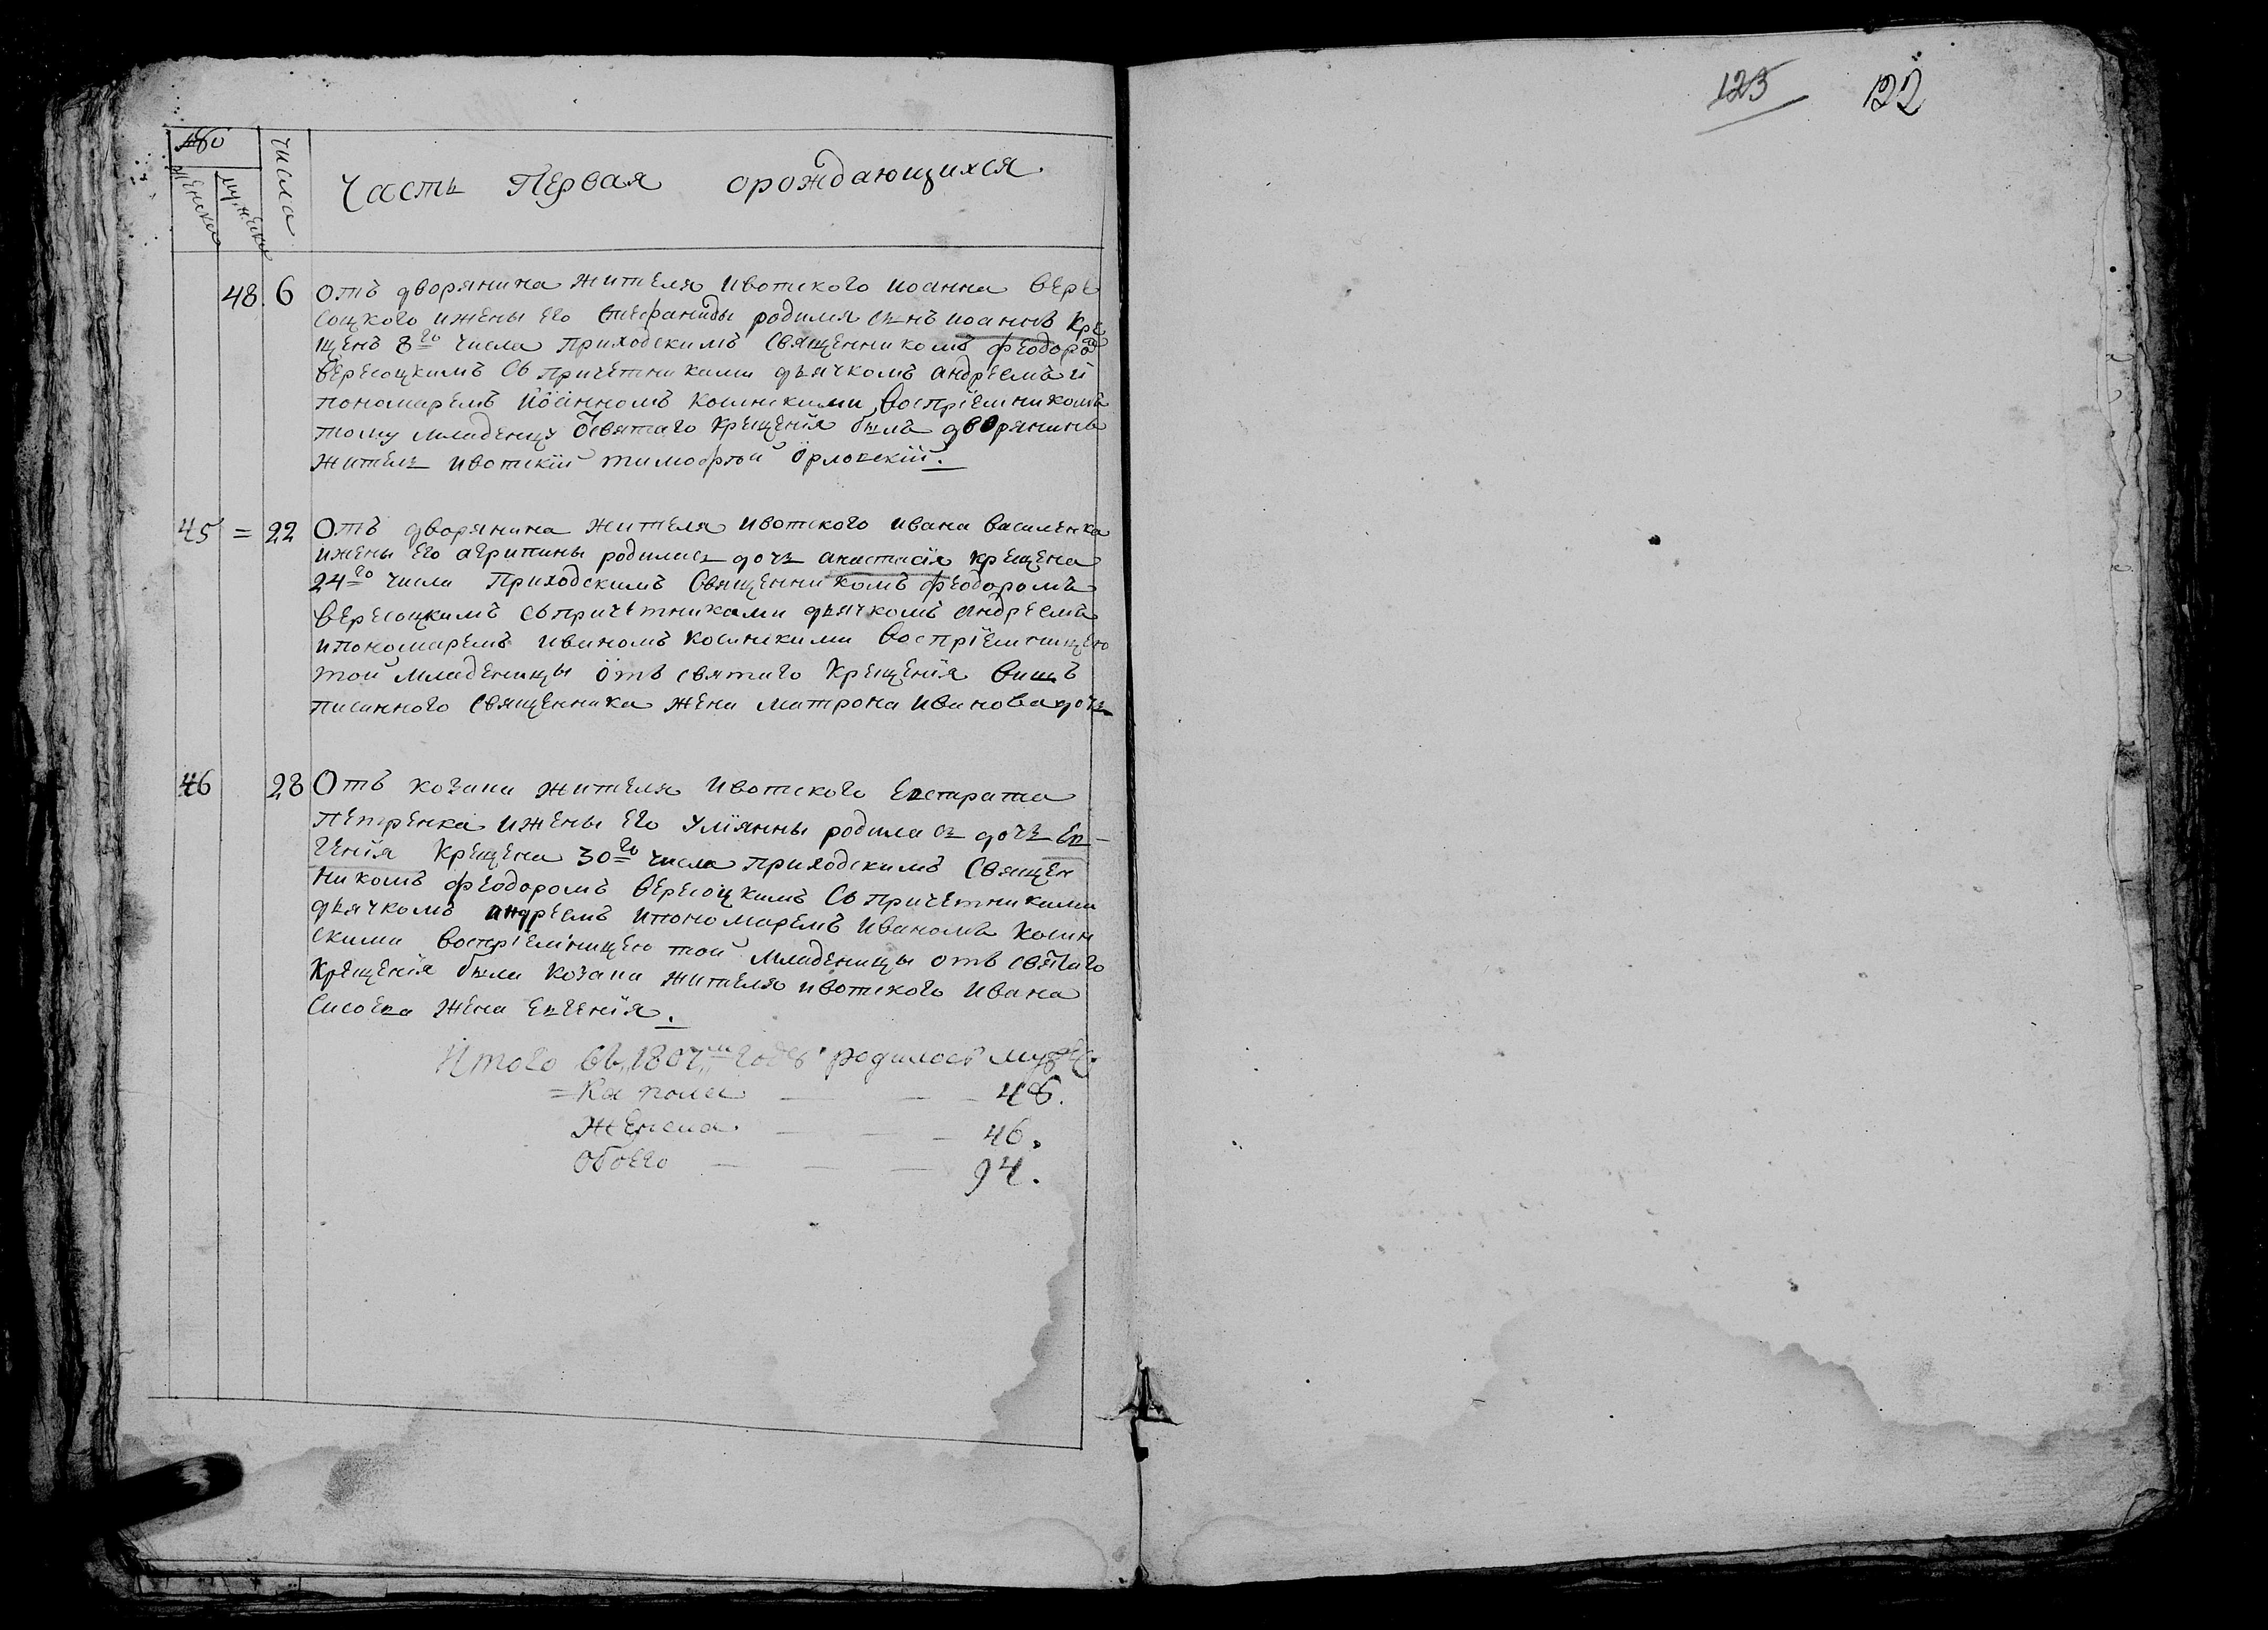 123 122
№
женска мужеска числа
Часть Первая орождающихся
48. 6 Отъ дворянина жителя ивотского иоанна вере
соцкого ижены его стефаниды родился сынъ иоаннъ Кре
щенъ 8го числа приходскимъ Священникомъ феодоро
вересоцкимъ съ причетниками дьячкомъ андреемъ и
пономаремъ иоанномъ косинскими воспріемникомъ
тому младенцу Ѿсвятаго крещенія былъ дворянинъ
житель ивотскій тимофѣй орловскій.
45 = 22 Отъ дворянина жителя ивотского ивана василенка
ижены его агрипины родилась дочь анастасія крещена
24го числа Приходскимъ Священникомъ феодоромъ
вересоцкимъ съпричетниками дьячкомъ андреемъ
ипономаремъ иваномъ косинскими воспріемницею
той младеницы отъ святаго Крещенія вишъ
писанного священника жена матрона иванова дочь
46 28 Отъ козака жителя ивотского Евстрата
Петренка ижены его улїянны родилась дочь Ев-
генія Крещена 30го числа приходскимъ Священ
никомъ феодоромъ вересоцкимъ Съ причетниками
дьячкомъ андреемъ ипономаремъ иваномъ косин
скими воспріемницею той младеницы отъ святаго
крещенія была козака жителя ивотского ивана
Сисоева жена Евгенія.
Итого въ 1807м годѣ родилось мужес
=ка пола — — — 48.
Женска — — — 46.
Обоего — — — 94.